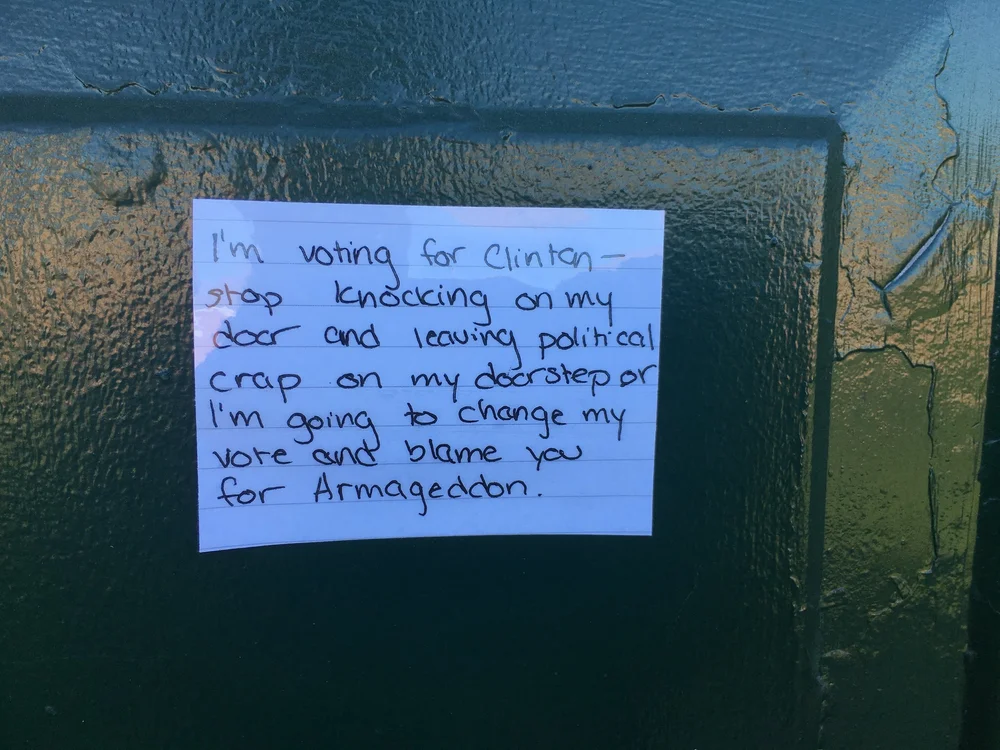 I'm voting for Clinton —
stop knocking on my
door and leaving political
crap on my doorstep or
I'm going to change my
vote and blame you
for Armageddon.